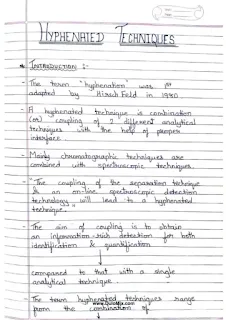 HYPHENATED TECHNIQUES
* INTRODUCTION :-
- The term "hyphenation" was 1st
adapted by Hirsch Feld in 1980.
- A hyphenated technique is combination
(or) coupling of 2 different analytical
techniques with the help of proper
interface.
- Mainly chromatographic techniques are
combined with spectroscopic techniques.
- "The coupling of the separation technique
& an on-line spectroscopic detection
technology will lead to a hyphenated
technique."
- The aim of coupling is to obtain
an information-rich detection for both
identification & quantification
↓
compared to that with a single
analytical technique.
- The term hyphenated techniques range
from the combination of